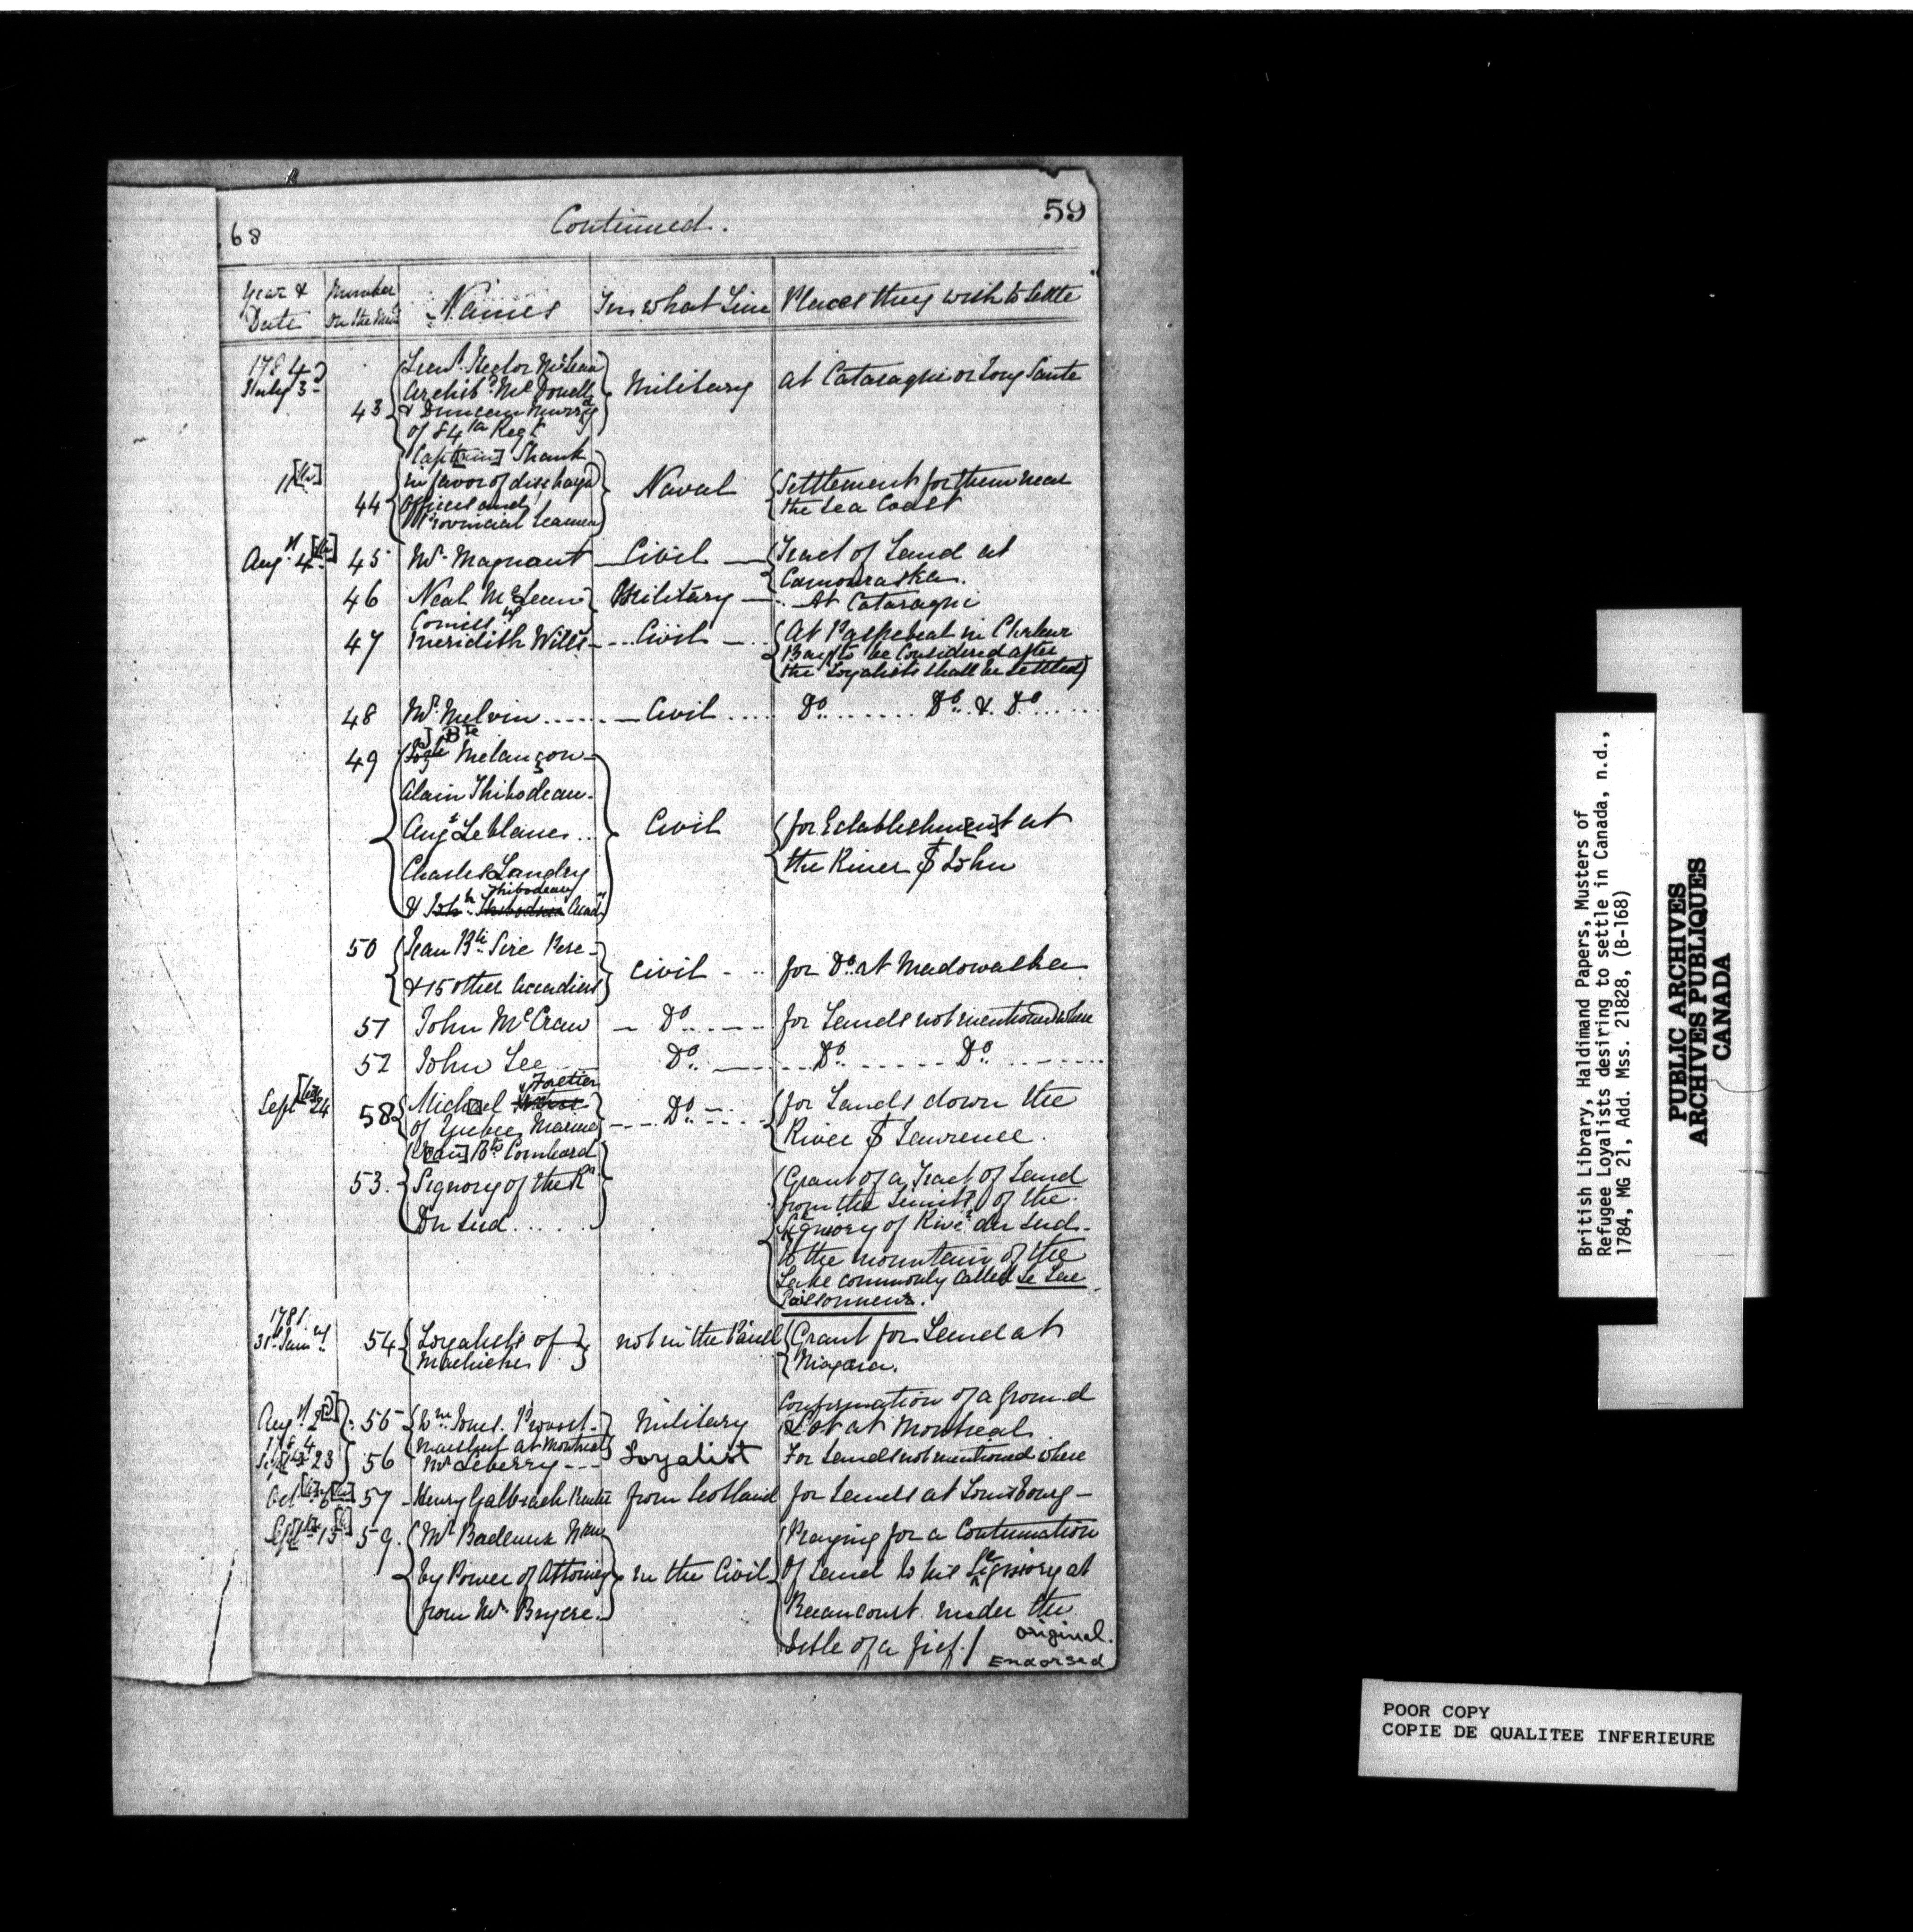 59
68
Continued.
Year & Date
Number on the
Names
In what Line
Places they wish to Settle
1784
July 3d
43
Lieut. Hector McLean
Archibd. McDonell
& Duncan Murray
of 84th Regt
Military
at Cataraqui or Long Saute
11[th]
44
Capt[ain] Shank
in favor of discharged
Officers and
Provincial Seamen
Naval
Settlement for them near
the Sea Coast
Augst 4[th]
45
Mr. Magnant
Civil
Tract of Land at
Camouraska.
46
Neal McLean
Military
At Cataraqui
47
Comissy
Meridith Wills
Civil
At Paspebeal in Chaleur
Bay to be Considered after
the Loyalists shall be Settled
48
Mr. Melvin
Civil
Do. Do. & Do.
49
J. Bte
Melançon
Alain Thibodeau
Augt. Leblanc
Charles Landry
Thibodeau
& Josh. Thibodeau Acadn
Civil
for Establishm[en]t at
the River St John
50
Jean Bte. Sire Pere
& 15 other Accadiens
Civil
for Do. at Madowaska
51
John McCraw
Do.
for Lands not mentioned where
52
John Lee
Do.
Do. Do.
Sept[em] 24
58
Foretier
Michael
of Quebec Marine
Do.
for Lands down the
River St Lawrence.
53.
[Jean] Bte Combeard
Signory of the Rr
Du Sud
Grant of a Tract of Land
from the Limits of the
Segniory of Rivr. du Sud
to the mountain of the
Lake commonly called Le Lac
Poissonneux.
1781.
31st Jany
54
Loyalists of
Machiche
not in the Panell
Grant for Land at
Niagara.
Augst 2[d]
55
Wm. Jones. Provost
Marshal at Montreal
Military
Confirmation of a Ground
Lot at Montreal
1784
Sept 23
56
Mr Liberry
Loyalist
For Lands not mentioned where
Oct 6[th]
57
Henry Galbreach
from Scotland
for Lands at Louisbourg
Sept 13[th]
59.
Mr Badeaux
by Power of Attorney
from Mr. Bruyere.
in the Civil
Praying for a Continuation
Of Land to his Segniory at
Becancourt under the
title of a fief./
original.
Endorsed
British Library, Haldimand Papers, Musters of
Refugee Loyalists desiring to settle in Canada, n.d.,
1784, MG 21, Add. Mss. 21828, (B-168)
PUBLIC ARCHIVES
ARCHIVES PUBLIQUES
CANADA
POOR COPY
COPIE DE QUALITEE INFERIEURE